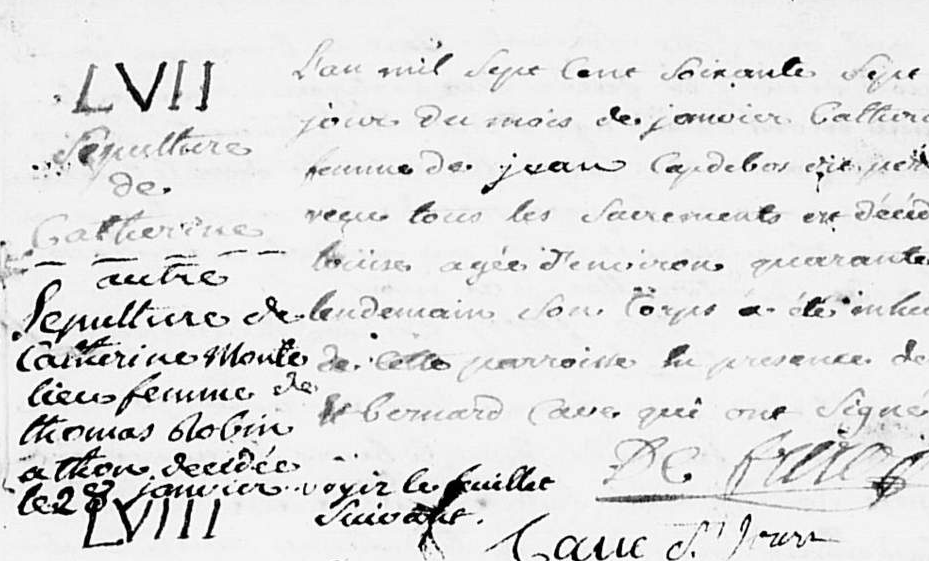 LVII
Sepulture
de
Catherine
autre
Sepulture de
Catherine Monte
lieu femme de
thomas Robin
a thon decidée
le 28 janvier voyir le feuillet
suivant.
LVIII
L'an mil Sept Cent Soixante Sept
jour du mois de janvier Catheri
femme de jean Capdebos
reçu tous les Sacrements et décéd
agée d'environ quarante
lendemain Son Corps a été inhu
de cette parroisse En presence de
bernard Cave qui ont Signé
De
Cave